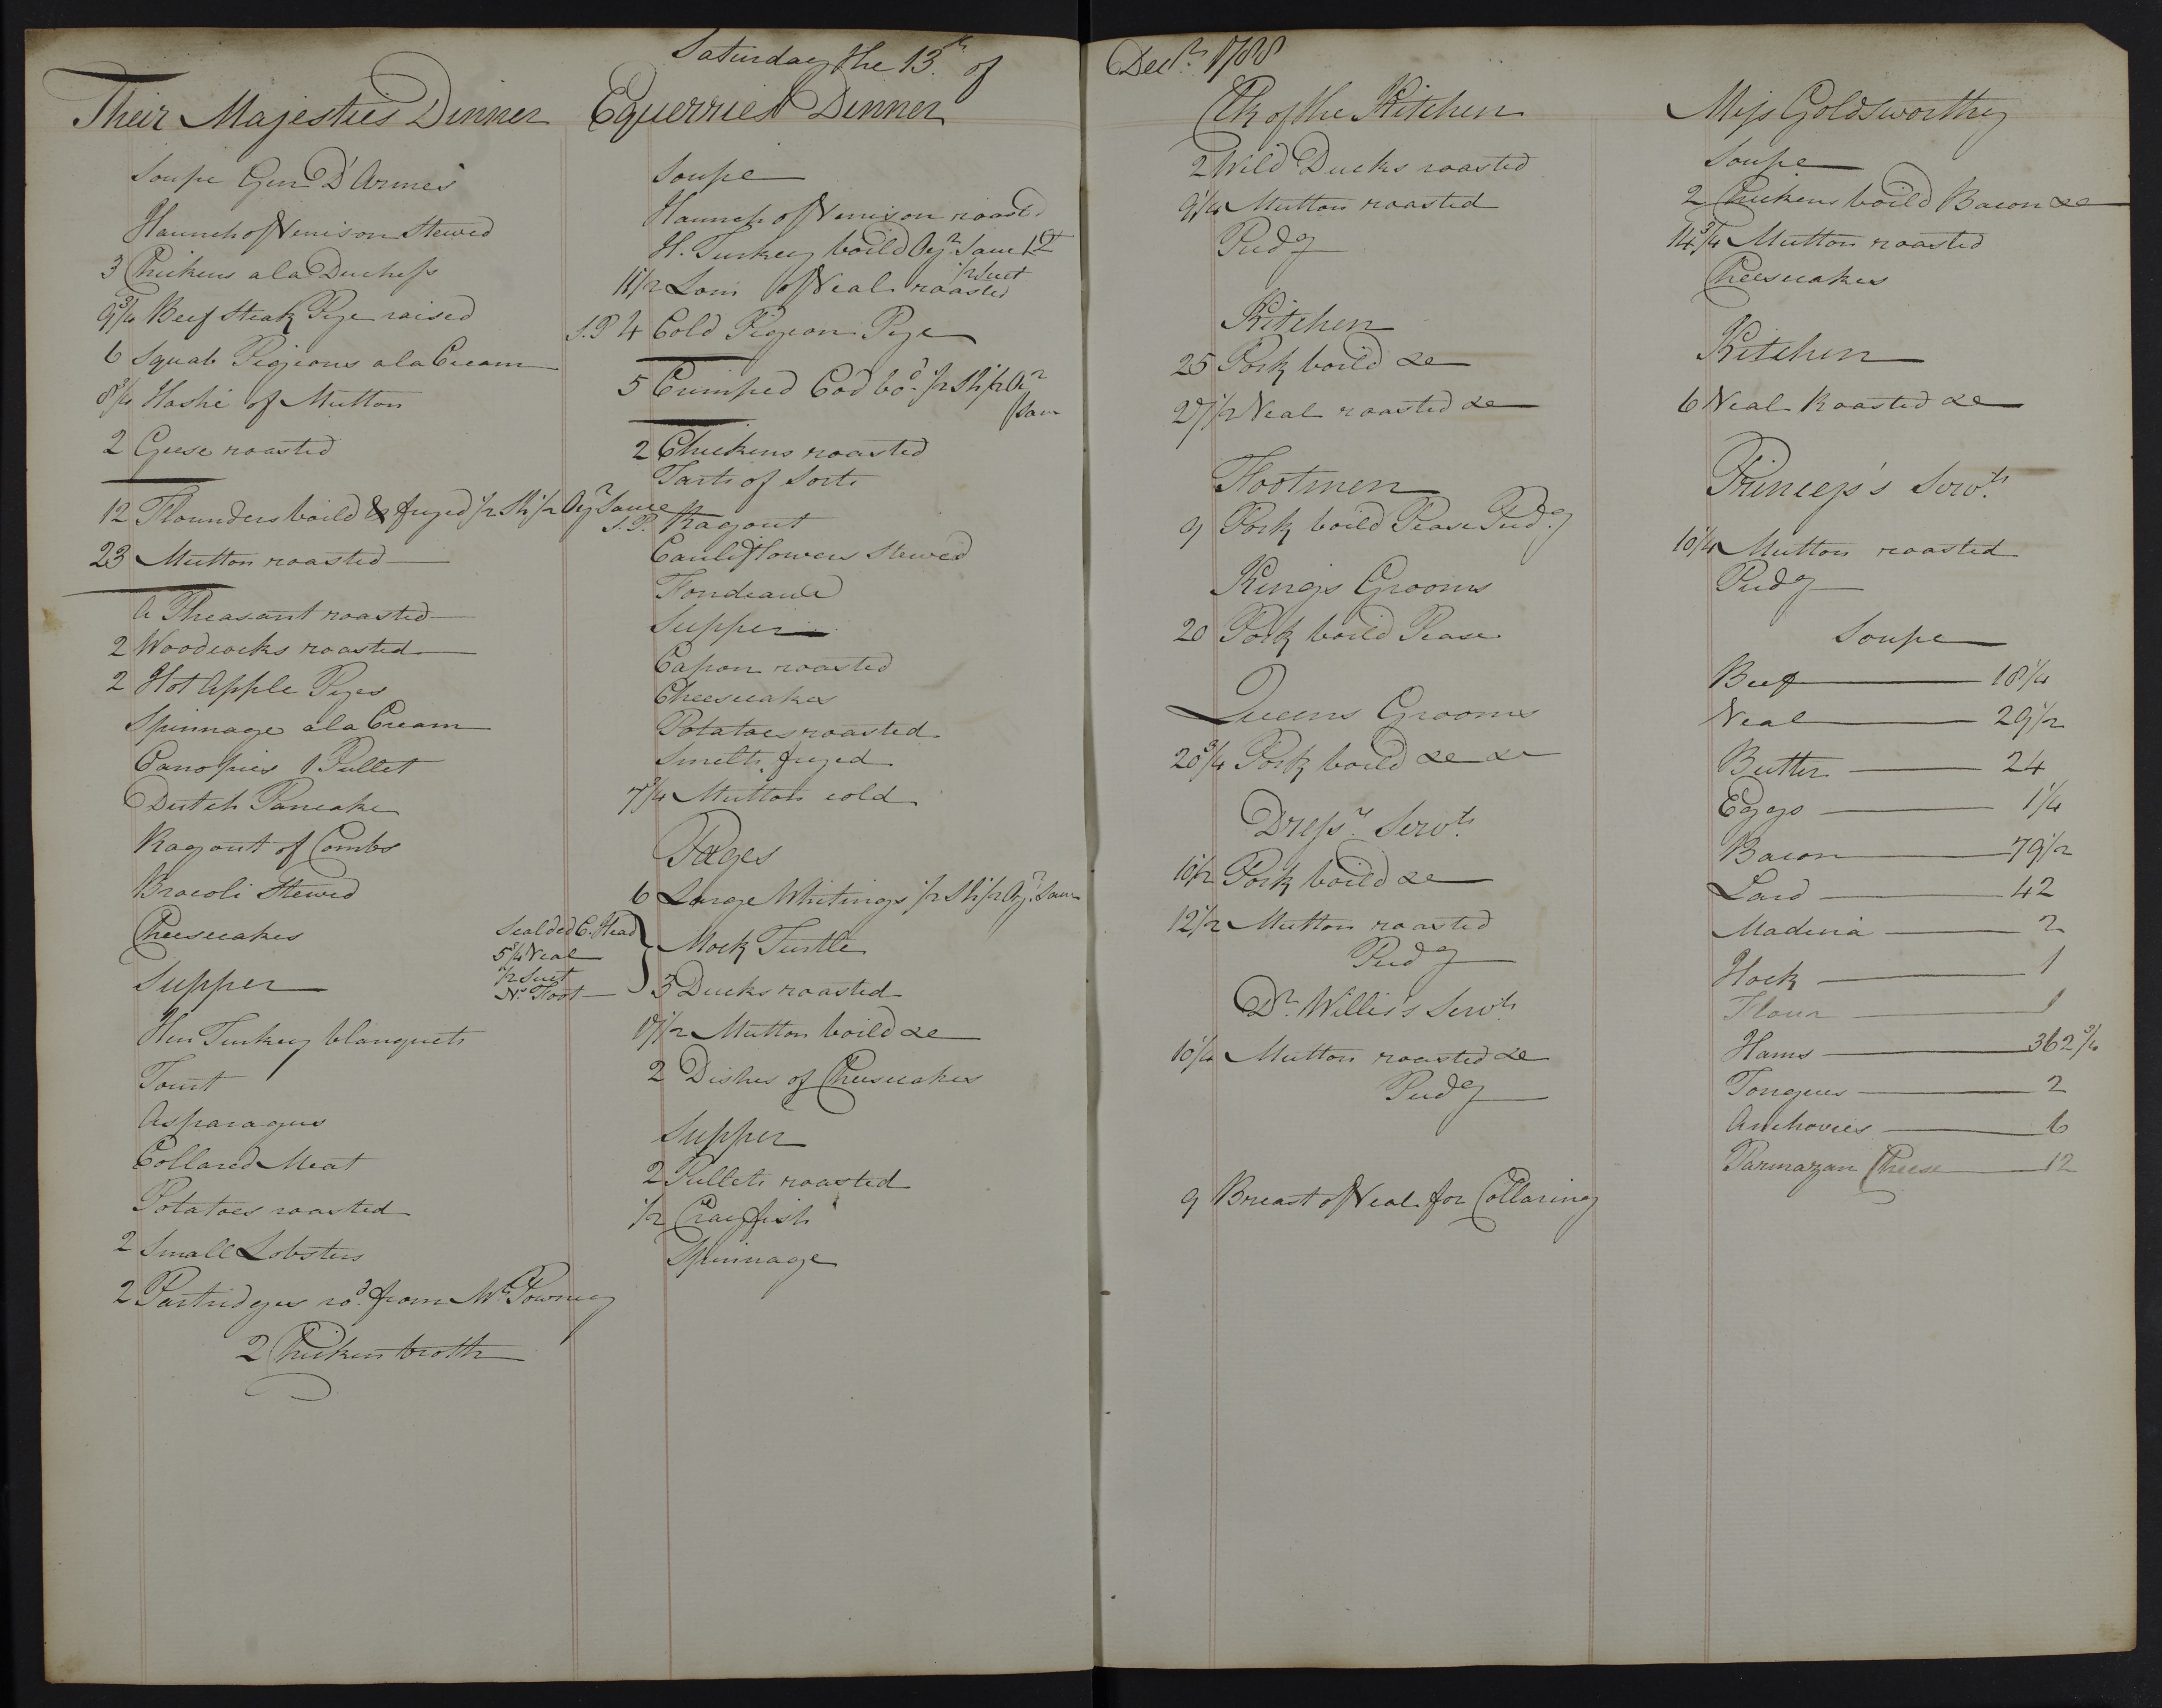 Saturday the 13th of
Decr. 1788
Their Majesties Dinner
Soupe Gen D'Armes
Haunch of Venison Stewed
3 Chickens a la Duchess
9 3/4 Beef Steak Pye raised
6 Squab Pigeons a la Cream
8 3/4 Hashe of Mutton
2 Geese roasted
12 Flounders boild & fryed 1/2 Sh 1/2 Oyr Sauce
23 Mutton roasted
A Pheasant roasted
2 Woodcocks roasted
2 Hot Apple Pyes
Spinnage a la Cream
Canopies 1 Pullet
Dutch Pancake
Ragout of Combs
Bracoli Stewed
Cheesecakes
Supper
Hen Turkey blanquets
Tourt
Asparagus
Collared Meat
Potatoes roasted
2 Small Lobsters
2 Partridges rod. from Mr Powney
2 Chicken broth
Equerries Dinner
Soupe
Haunch of Venison roasted
H. Turkey boild Oyr Sauce
11 1/2 Loin of Veal roasted
1/2 Suet
S.P 4 Cold Pigeon Pye
5 Crimped Cod bod. 1/2 Sh 1/2 Oyr
Sau
2 Chickens roasted
Tarts of Sorts
S.P. Ragout
Cauliflowers Stewed
Fondeaux
Supper
Capon roasted
Cheesecakes
Potatoes roasted
Smelts fryed
7 3/4 Mutton cold
Pages
6 Large Whitings 1/2 Sh 1/2 Oyr Sauce
Scalded C. Head
5 1/4 Veal
1/2 Suet
Ns. Foot
Mock Turtle
3 Ducks roasted
17 1/2 Mutton boild &c
2 Dishes of Cheesecakes
Supper
2 Pullets roasted
1/2 Crayfish
Spinnage
Clk of the Kitchen
2 Wild Ducks roasted
9 1/4 Mutton roasted
Pudg
Kitchen
25 Pork boild &c
27 1/2 Veal roasted &c
Footmen
9 Pork boild Pease Pudg
Kings Grooms
20 Pork boild Pease
Queens Grooms
20 3/4 Pork boild &c &c
Dressrs Servts
10 1/2 Pork boild &c
12 1/2 Mutton roasted
Pudg
Dr. Willis's Servts
10 1/4 Mutton roasted &c
Pudg
9 Breast of Veal for Collaring
Miss Goldsworthy
Soupe
2 Chickens boild Bacon &c
14 3/4 Mutton roasted
Cheesecakes
Kitchen
6 Veal Roasted &c
Princess's Servts
10 1/4 Mutton roasted
Pudg
Soupe
Beef 18 1/4
Veal 29 1/2
Butter 24
Eggs 1/4
Bacon 79 1/2
Lard 42
Madeira 2
Hock 1
Flour 1
Hams 362 3/4
Tongues 2
Anchovies 6
Parmazan Cheese 12